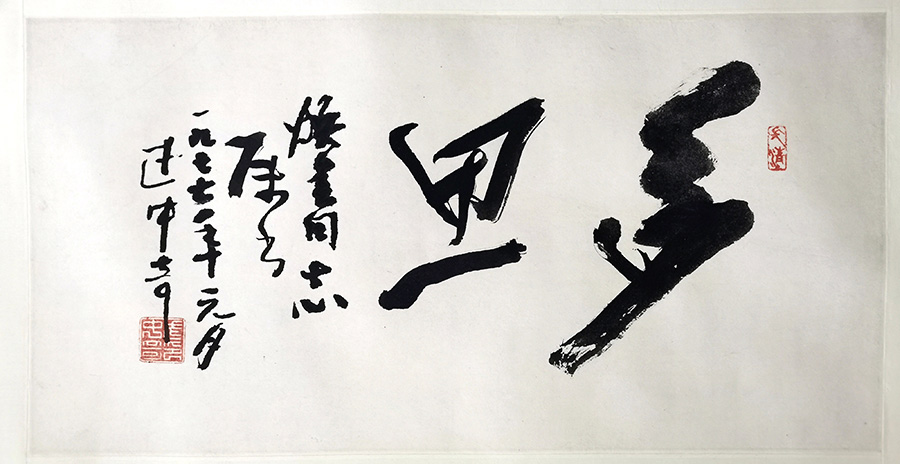 多思
同志
属书
一九七七年元月
武中奇